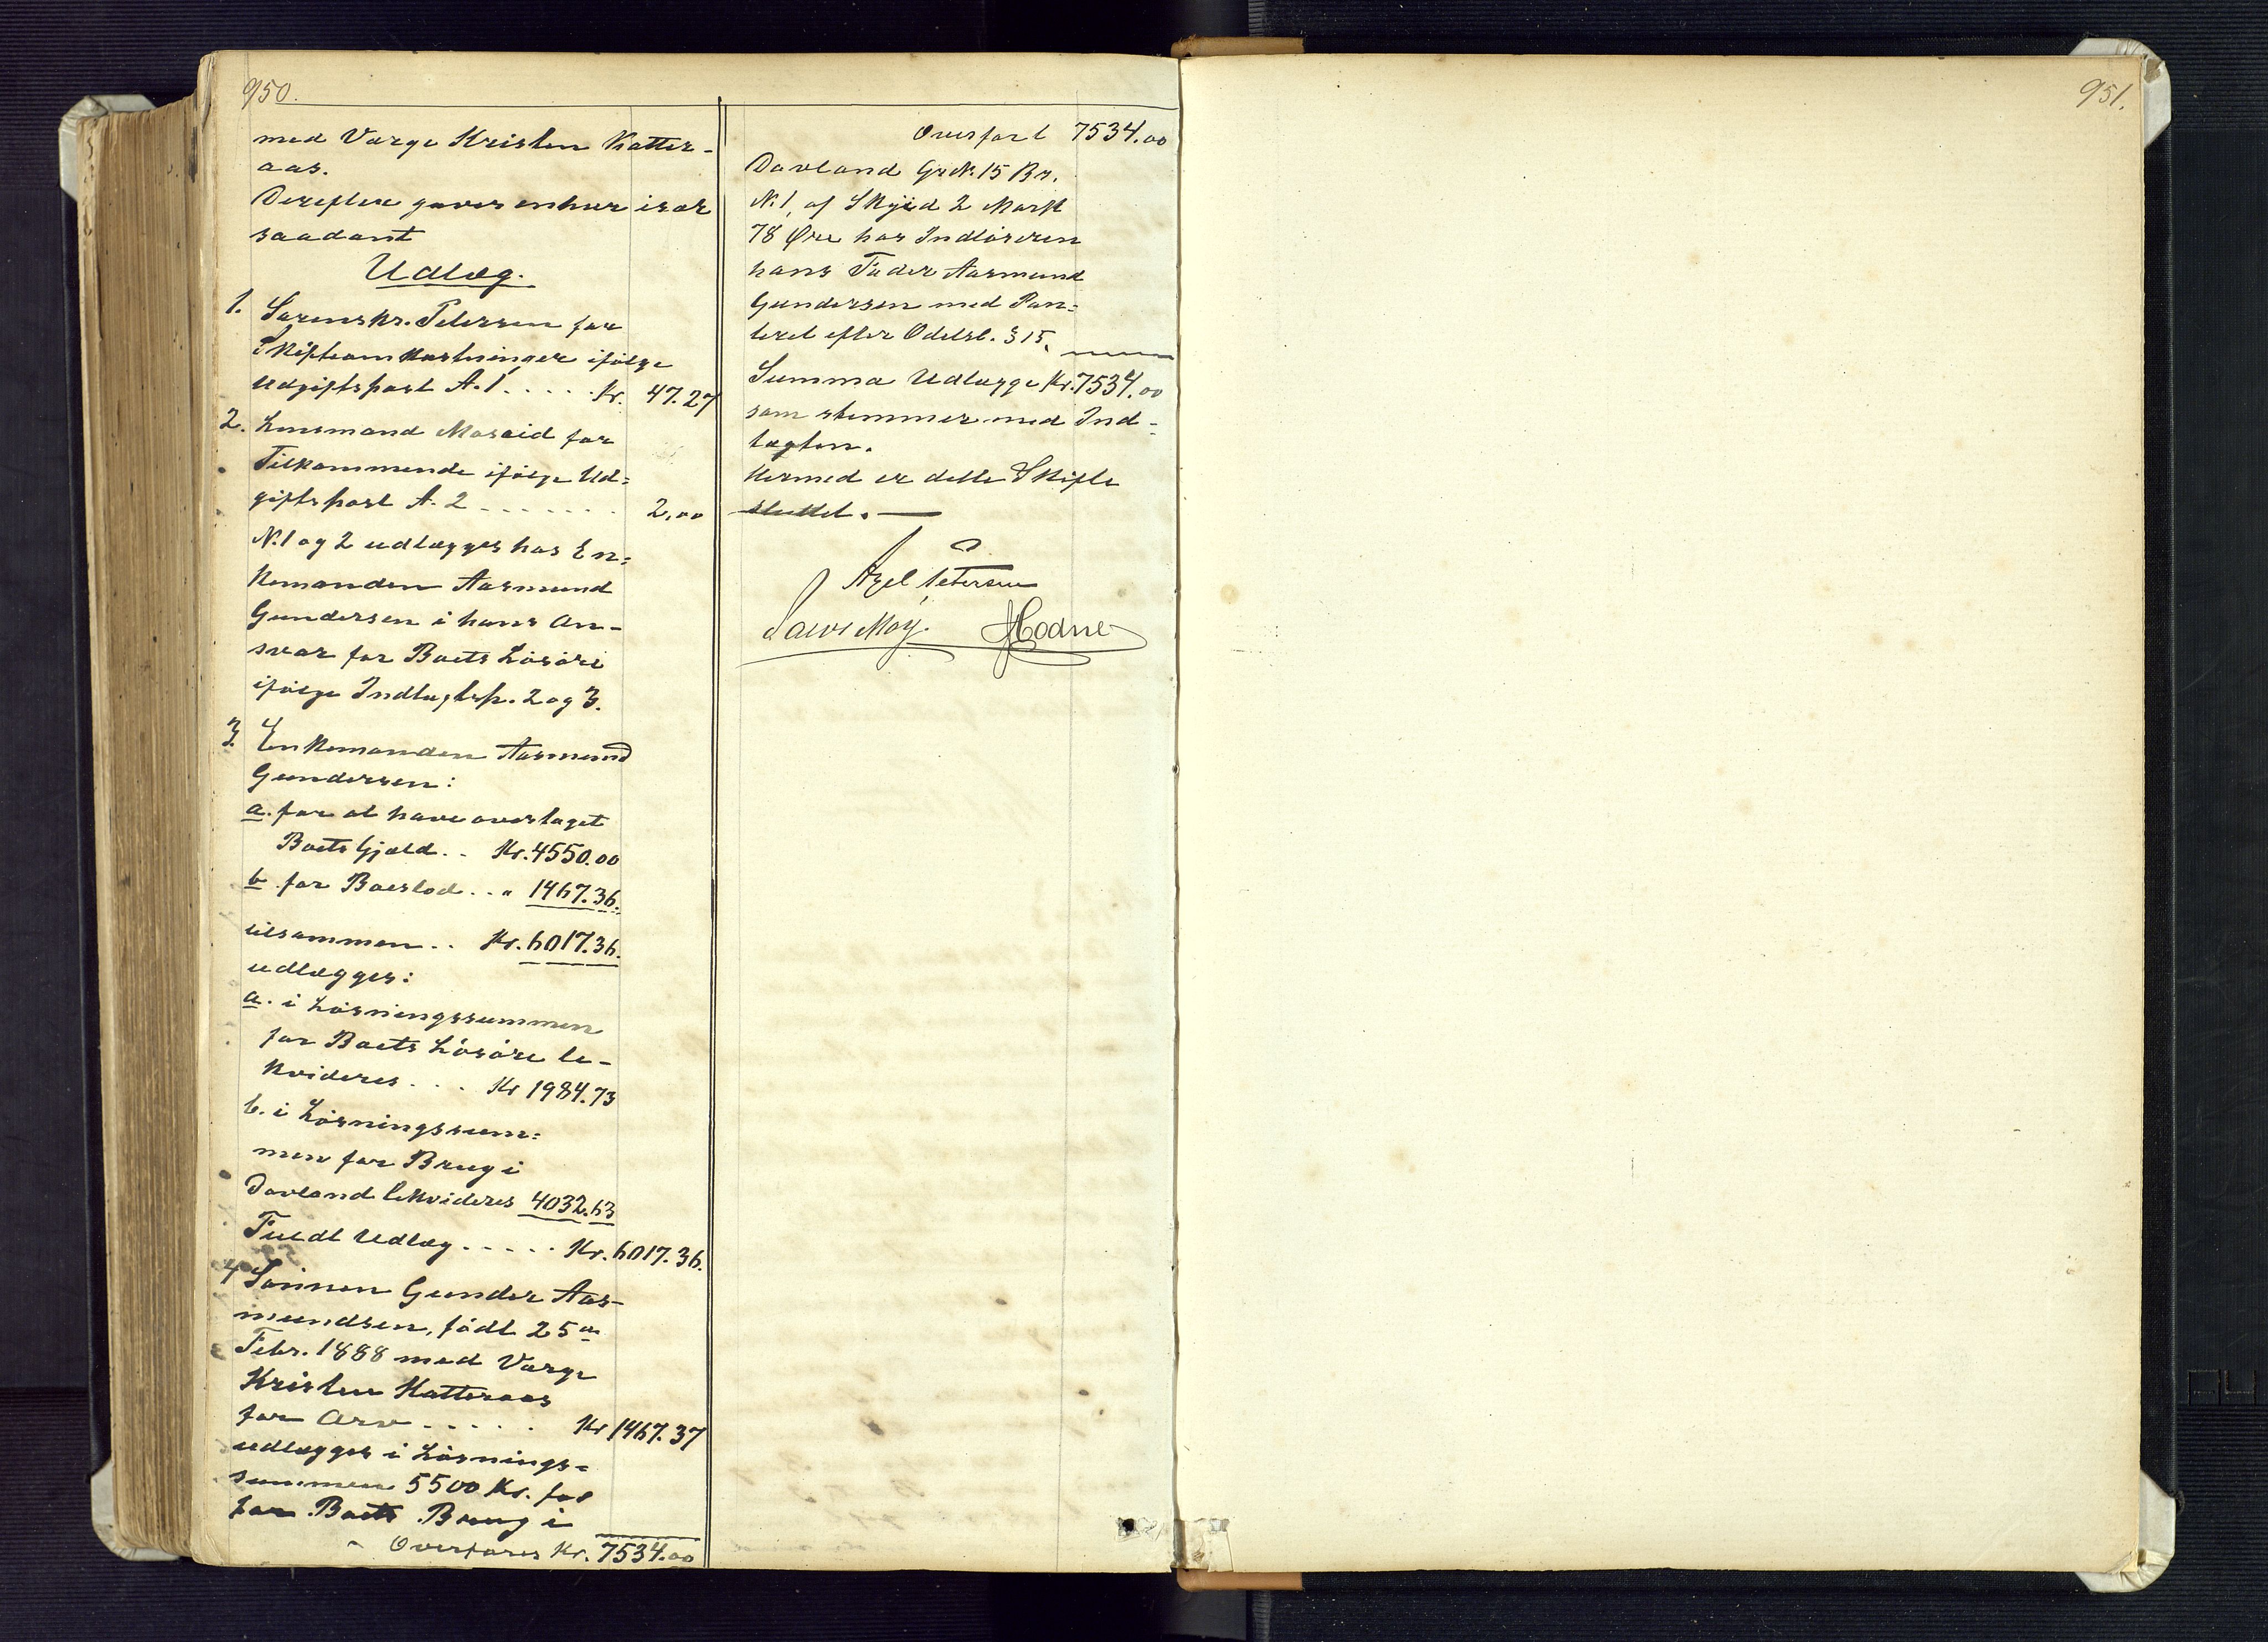 950.
med Værge Kristen Katter-
aas.
Derefter gjøres enhver især
saadant
Udlæg.
1. Sorenskr. Petersen for
Skifteomkostninger ifølge
Udgiftspost A. 1 . . . . . Kr. 47.27
2. Lensmand Moseid for
Tilkommende ifølge Ud=
giftspost A. 2 . . . . . . . 2,00
N. 1 og 2 udlægges hos En=
kemanden Aasmund
Gundersen i hans An-
svar for Boets Løsøre
ifølge Indtægtsp. 2 og 3.
3. Enkemanden Aasmund
Gundersen:
a. for at have overtaget
Boets Gjæld . . Kr. 4550.00
b. for Boeslod . . " 1467.36.
tilsammen . . Kr. 6017.36.
udlægges:
a. i Løsningssummen
for Boets Løsøre le-
kvideres . . . Kr 1984.73
b. i Løsningssum=
men for Brug i
Dovland lekvideres 4032.63
Fuldt Udlæg . . . . . Kr. 6017.36.
4 Sønnen Gunder Aas-
mundsen, født 25de
Febr. 1888 med Værge
Kristen Katteraas
for Arv . . . . . Kr 1467.37
udlægges i Løsnings=
summen 5500 Kr. for
for Boets Brug i
Overføres Kr. 7534.00
Overført 7534.00
Dovland Gr.N. 15 Br.
N. 1, af Skyld 2 Mark
78 Øre hos Indløseren
hans Fader Aasmund
Gundersen med Pan=
teret efter Odelsl. § 15.
Summa Udlægge Kr. 7534.00
som stemmer med Ind-
tægten.
Hermed er dette Skifte
sluttet. —
Axel Petersen
Salve Moy. Hodne
951.